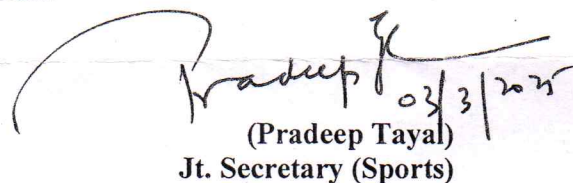 Pradeep
03/3/2025
(Pradeep Tayal)
Jt. Secretary (Sports)